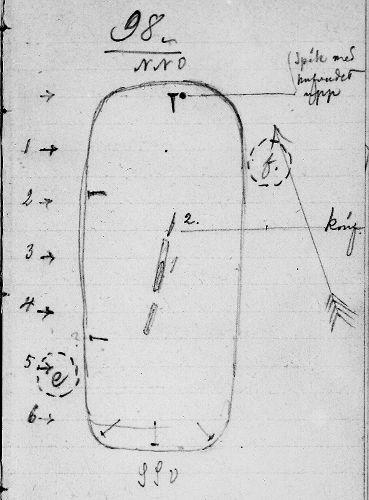 98.
NNO
Spik med
hufvudet
upp
1
f.
2
2.
knif.
3
1
4
?
5
e
6
SSV